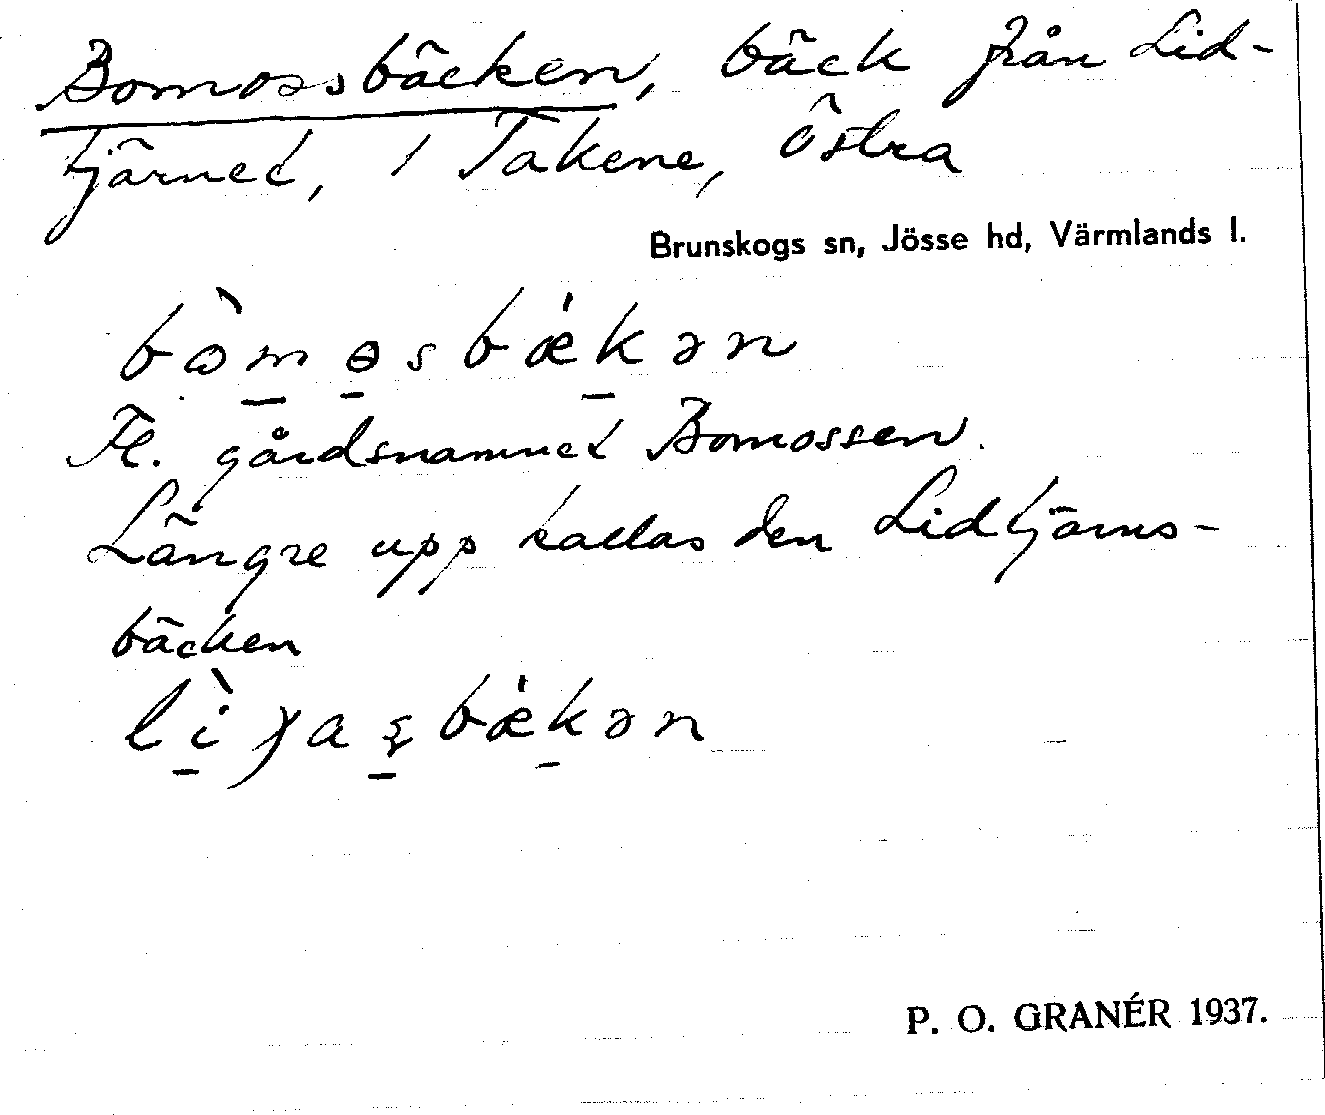 Bomossbäcken, bäck från Lid-
tjärnet, 1 Takene, Östra
Brunskogs sn, Jösse hd, Värmlands l.
bɷ̀mɵsbǽkən
Fl. gårdsnamnet Bomossen.
Längre upp kallas den Lidtjärns-
bäcken
P. O. GRANÉR 1937.